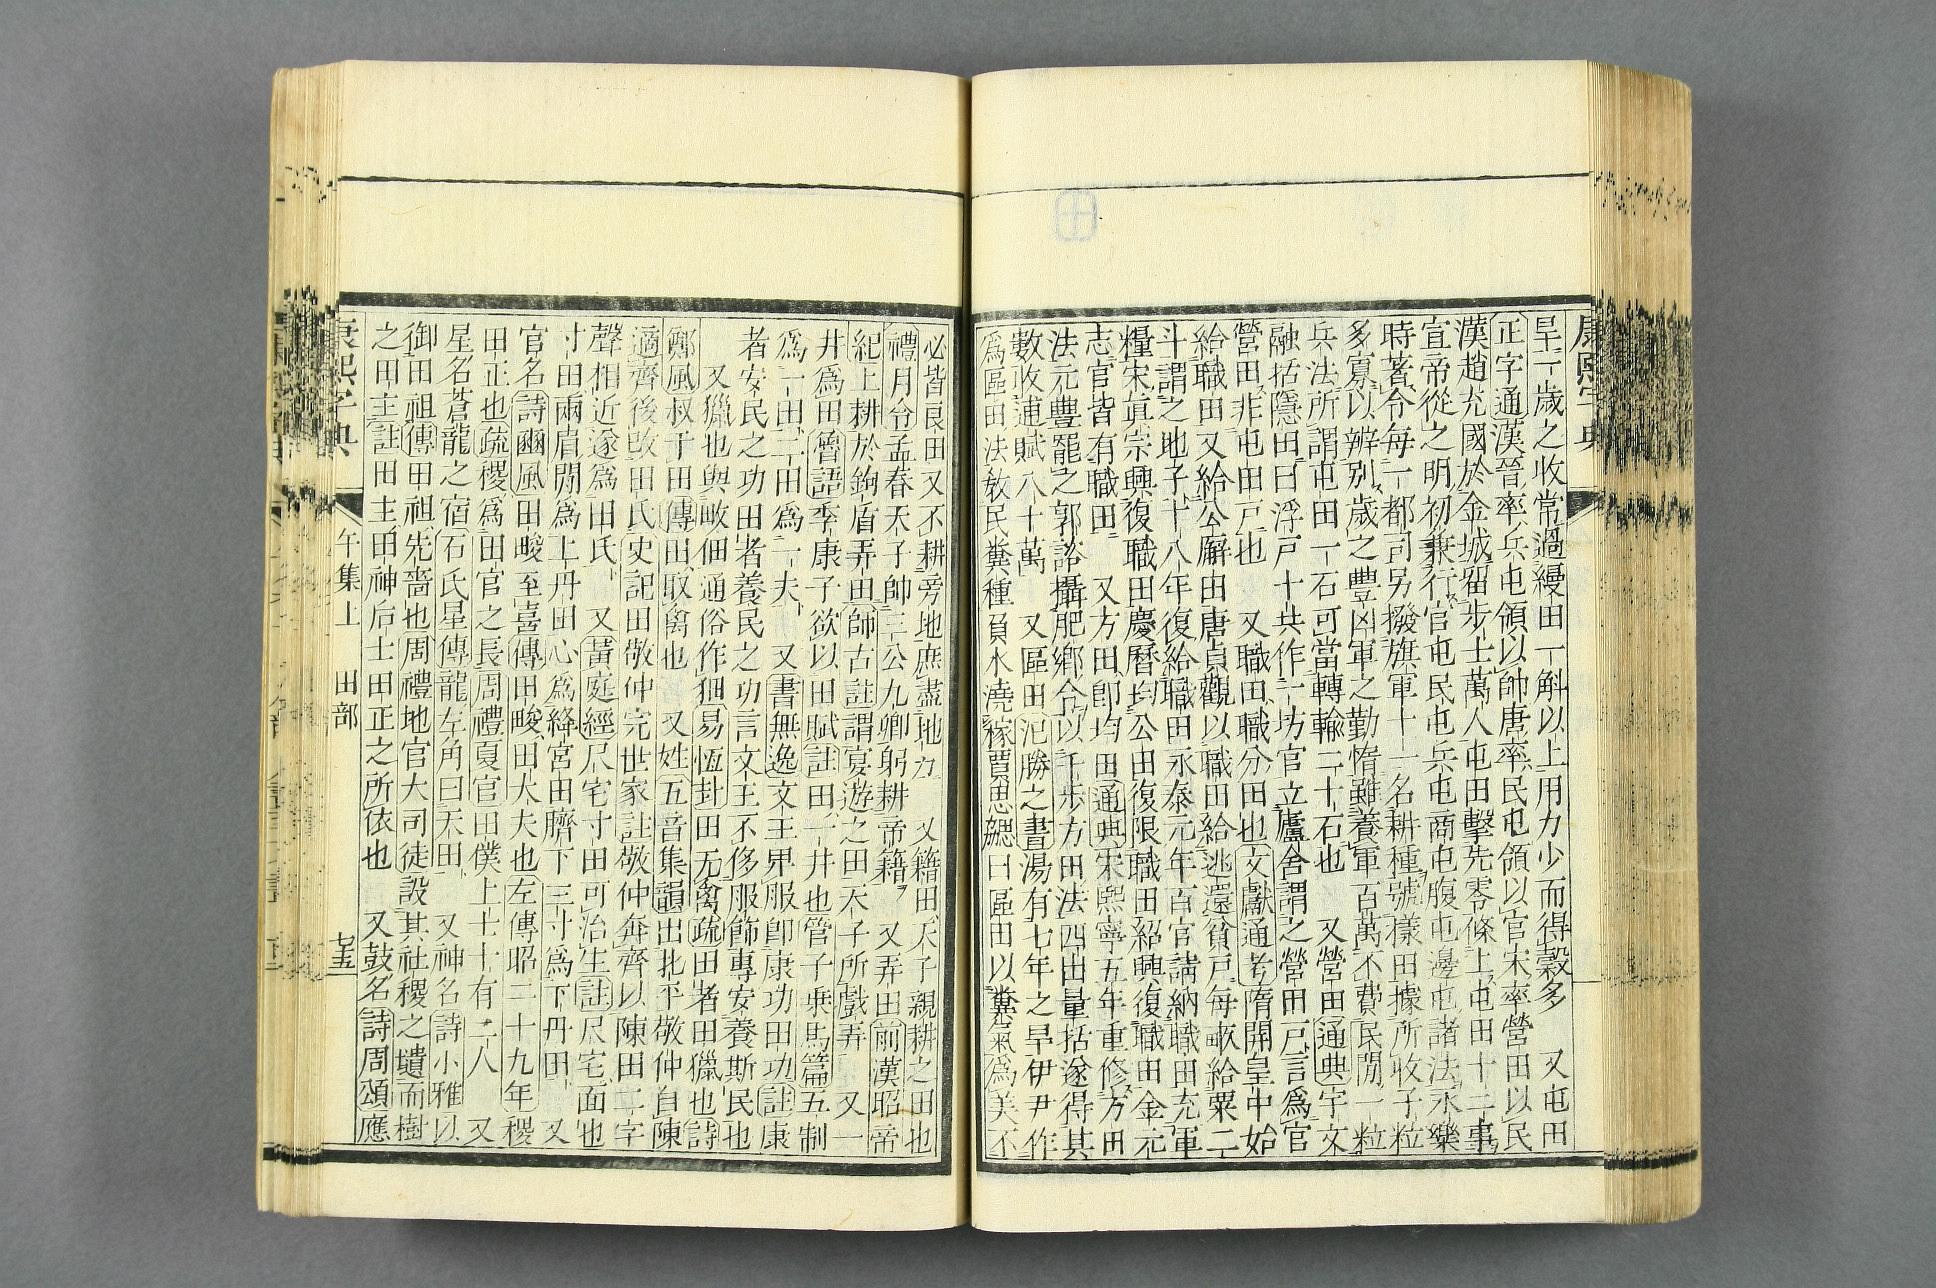 旱一歲之收常過縵田一斛以上用力少而得穀多　又屯田
正字通漢晉率兵屯領以帥唐率民屯領以官宋率營田以民
漢趙充國於金城留步士萬人屯田擊先零條上屯田十二事
宣帝從之明初兼行官屯民屯兵屯商屯腹屯邊屯諸法永樂
時著令每一都司另撥旗軍十一名耕種號樣田據所收子粒
多寡以辨別歲之豐凶軍之勤惰雖養軍百萬不費民閒一粒
兵法所謂屯田一石可當轉輸二十石也　又營田通典宇文
融括隱田曰浮戸十共作一坊官立廬舍謂之營田戸言爲官
營田非屯田戸也　又職田職分田也文獻通考隋開皇中始
給職田又給公廨田唐貞觀以職田給逃還貧戸每畝給粟二
斗謂之地子十八年復給職田永泰元年百官請納職田充軍
糧宋眞宗興復職田慶曆均公田復限職田紹興復職田金元
志官皆有職田　又方田卽均田通典宋熙寧五年重修方田
法元豐罷之郭諮攝肥鄉令以千步方田法四出量括遂得其
數收逋賦八十萬　又區田氾勝之書湯有七年之旱伊尹作
爲區田法敎民糞種負水澆稼賈思勰曰區田以糞氣爲美不
必皆良田又不耕旁地庶盡地力　又籍田天子親耕之田也
禮月令孟春天子帥三公九卿躬耕帝籍　又弄田前漢昭帝
紀上耕於鉤盾弄田師古註謂宴遊之田天子所戲弄　又一
井爲田魯語季康子欲以田賦註田一井也管子乗馬篇五制
爲一田二田爲一夫　又書無逸文王卑服卽康功田功註康
者安民之功田者養民之功言文王不侈服飾專安養斯民也
又獵也與畋佃通俗作𤝗易恆卦田无禽疏田者田獵也詩
鄭風叔于田傳田取禽也　又姓五音集韻出北平敬仲自陳
適齊後改田氏史記田敬仲完世家註敬仲奔齊以陳田二字
聲相近遂爲田氏　又黃庭經尺宅寸田可治生註尺宅面也
寸田兩眉閒爲上丹田心爲絳宮田臍下三寸爲下丹田　又
官名詩豳風田畯至喜傳田畯田大夫也左傳昭二十九年稷
田正也疏稷爲田官之長周禮夏官田僕上士十有二人　又
星名蒼龍之宿石氏星傳龍左角曰天田　又神名詩小雅以
御田祖傳田祖先嗇也周禮地官大司徒設其社稷之壝而樹
之田主註田主田神后土田正之所依也　又鼓名詩周頌應
康熙字典　午集上　田部　七五